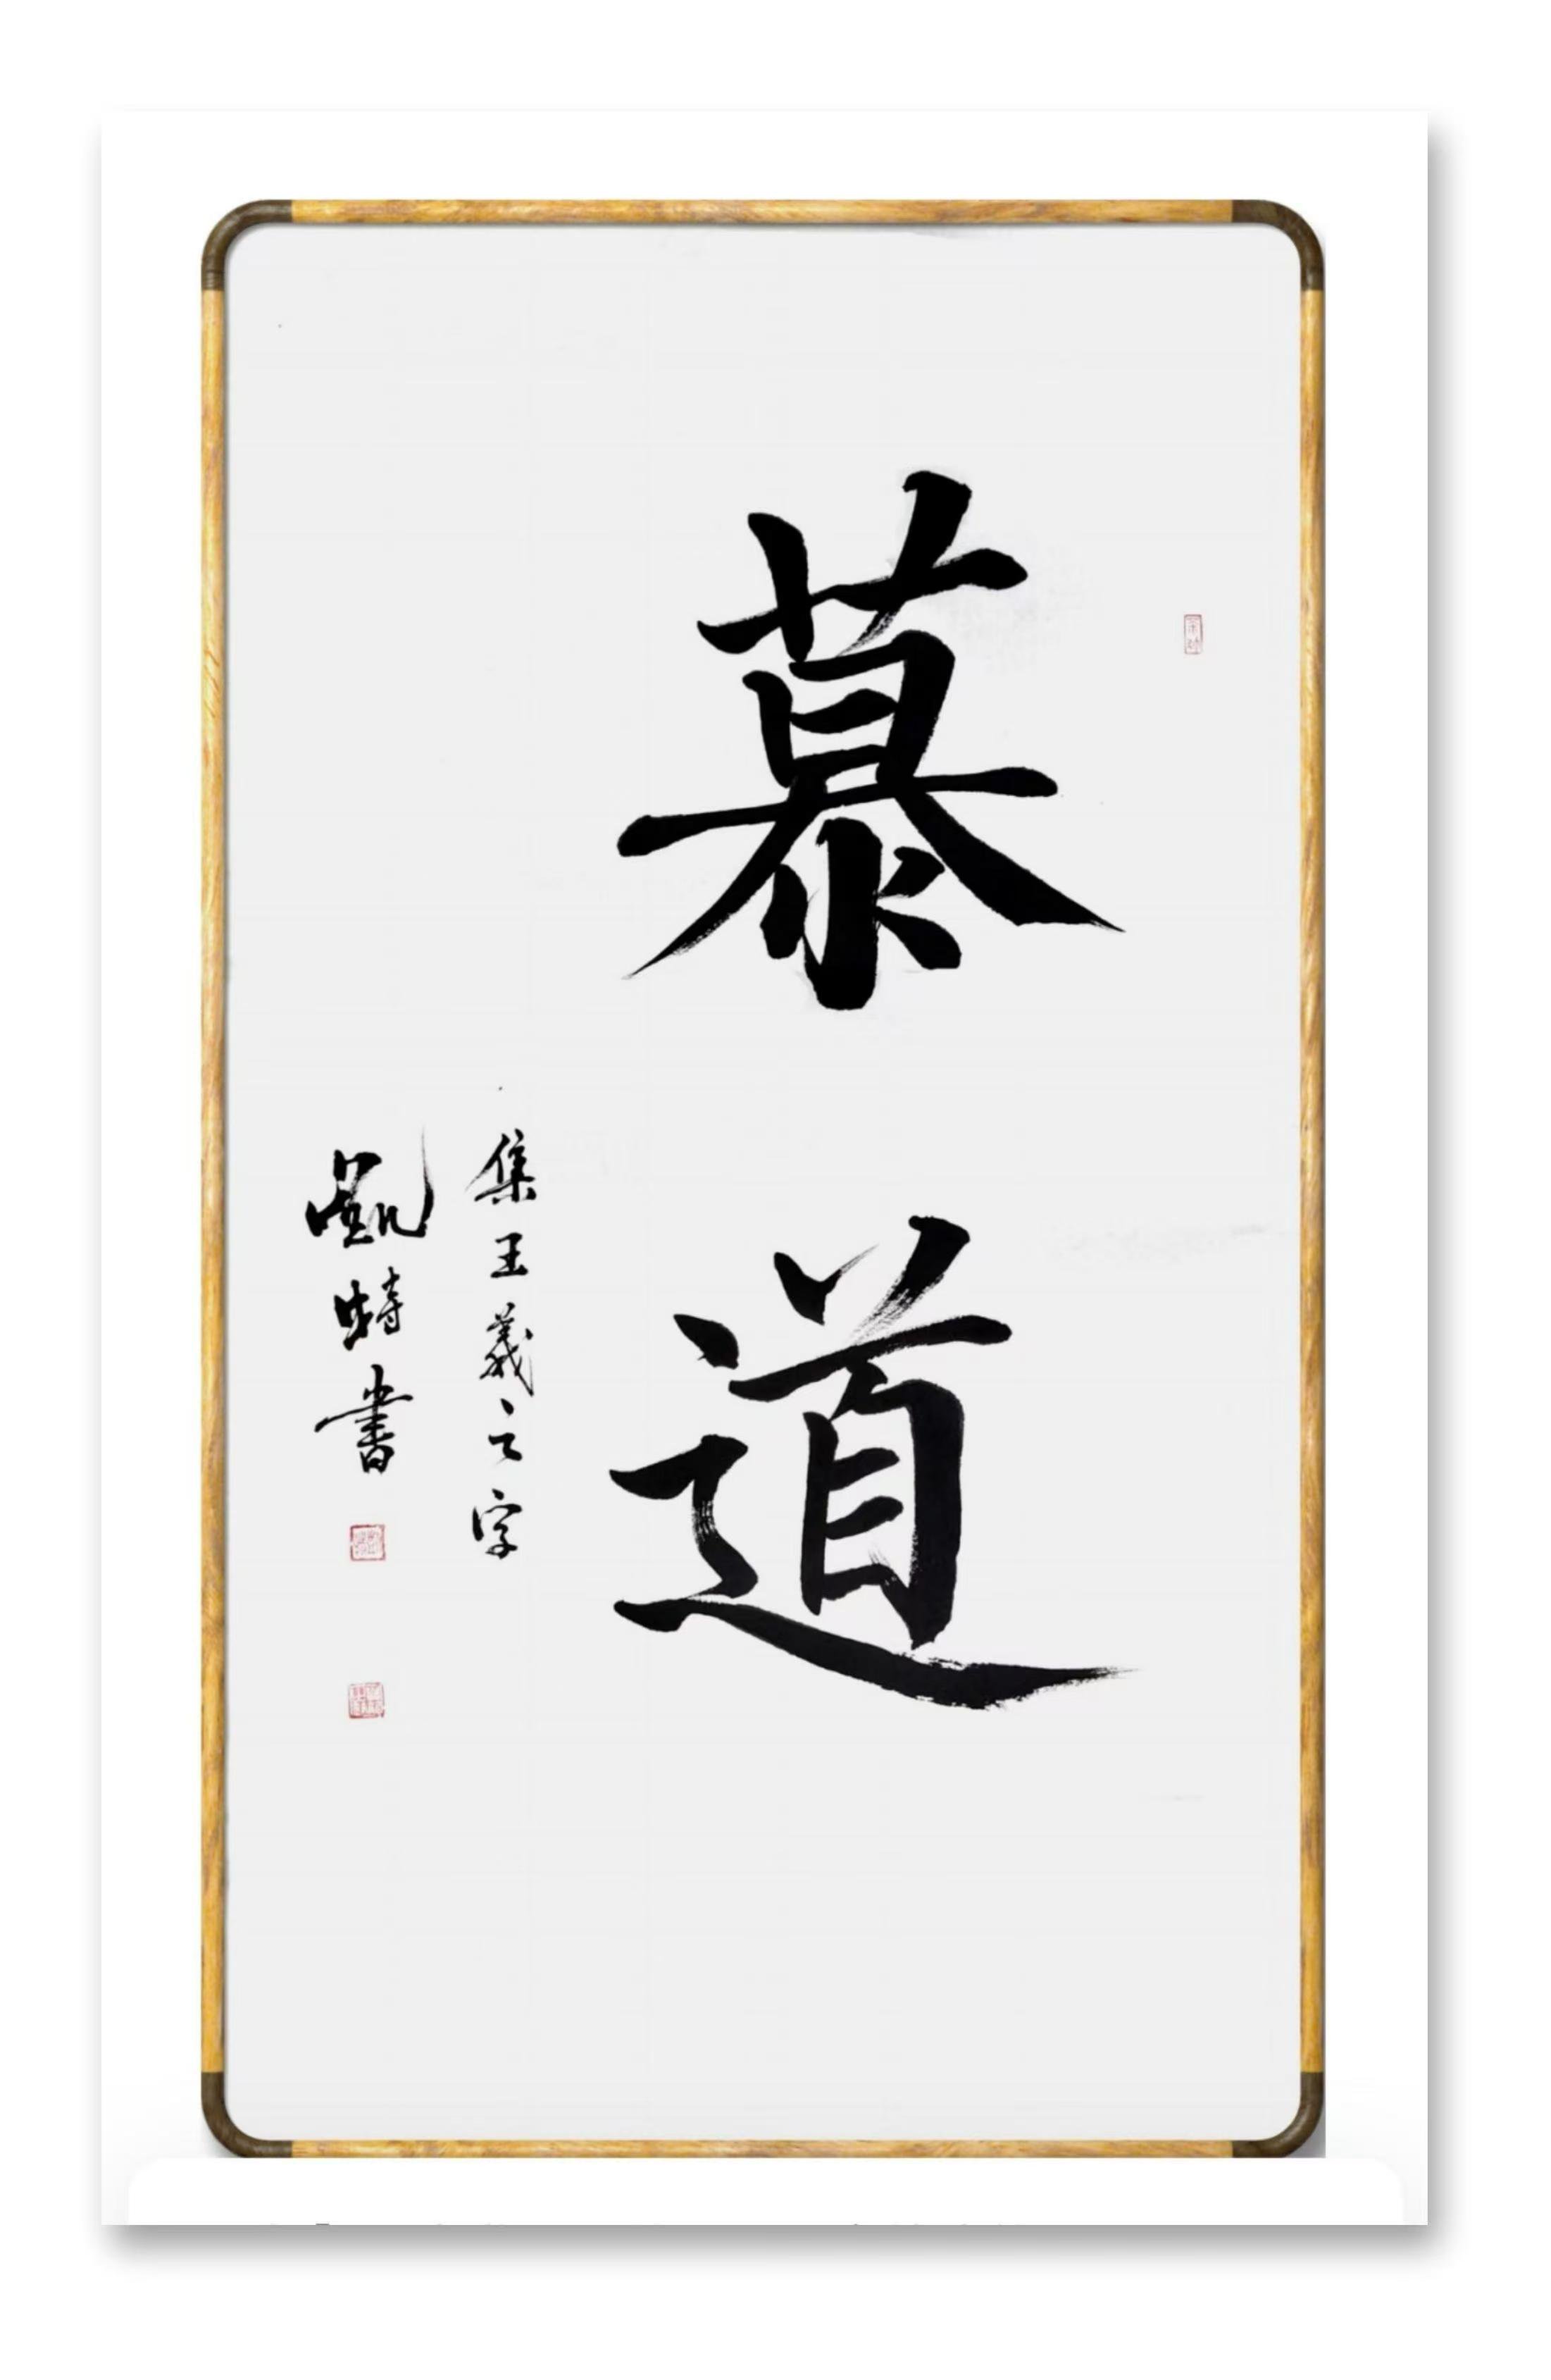 慕道
集王羲之字
凱特書